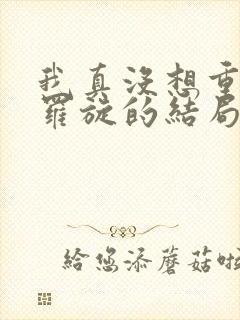 我真沒想重
羅旋的結局
給您添蘑菇啦